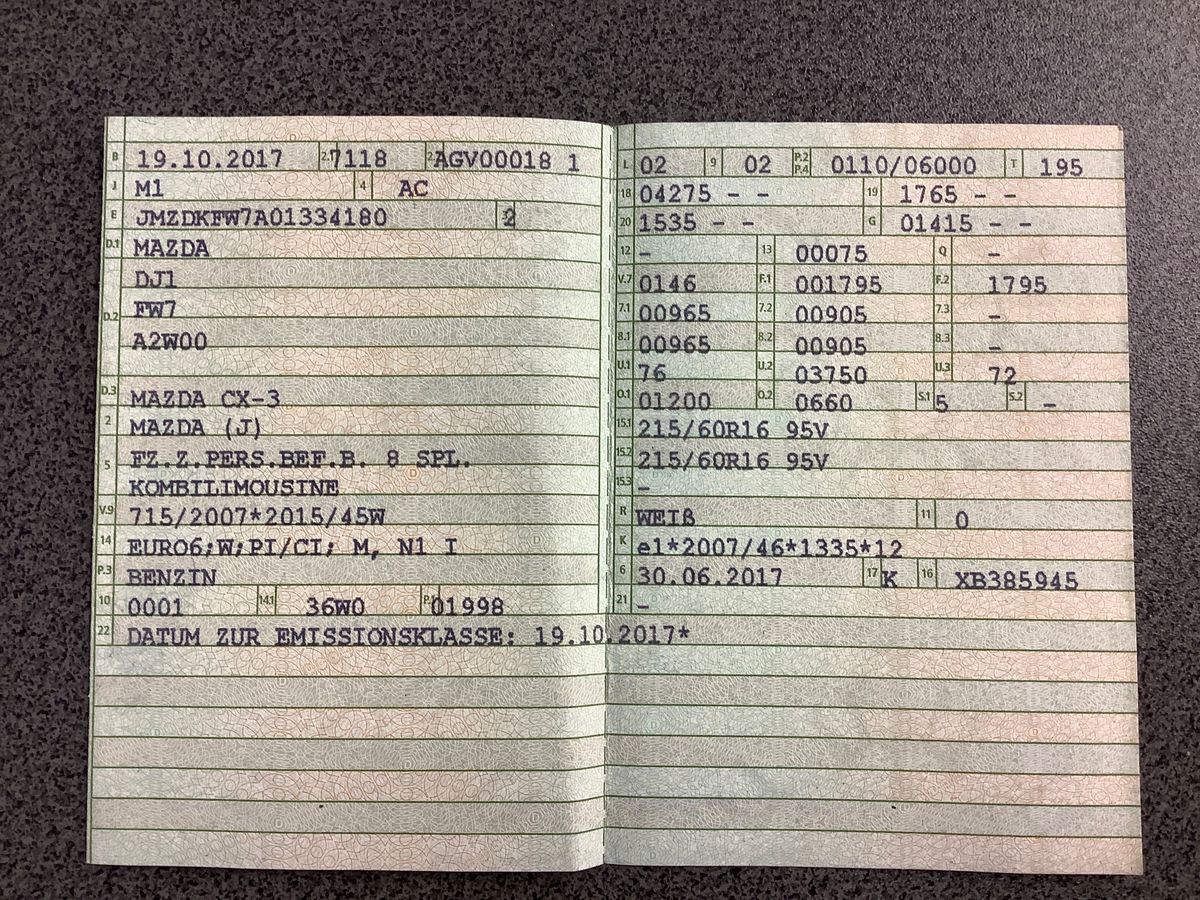 B 19.10.2017 2.1 7118 2.2 AGV00018 1
J M1 4 AC
E JMZDKFW7A01334180 3 2
D.1 MAZDA
DJ1
D.2 FW7
A2W00
D.3 MAZDA CX-3
2 MAZDA (J)
5 FZ.Z.PERS.BEF.B. 8 SPL.
KOMBILIMOUSINE
V.9 715/2007*2015/45W
14 EURO6;W;PI/CI; M, N1 I
P.3 BENZIN
10 0001 14.1 36W0 P.1 01998
22 DATUM ZUR EMISSIONSKLASSE: 19.10.2017*
L 02 9 02 P.2 P.4 0110/06000 T 195
18 04275 - - 19 1765 - -
20 1535 - - G 01415 - -
12 - 13 00075 Q -
V.7 0146 F.1 001795 F.2 1795
7.1 00965 7.2 00905 7.3 -
8.1 00965 8.2 00905 8.3 -
U.1 76 U.2 03750 U.3 72
O.1 01200 O.2 0660 S.1 5 S.2 -
15.1 215/60R16 95V
15.2 215/60R16 95V
15.3 -
R WEIß 11 0
K e1*2007/46*1335*12
6 30.06.2017 17 K 16 XB385945
21 -